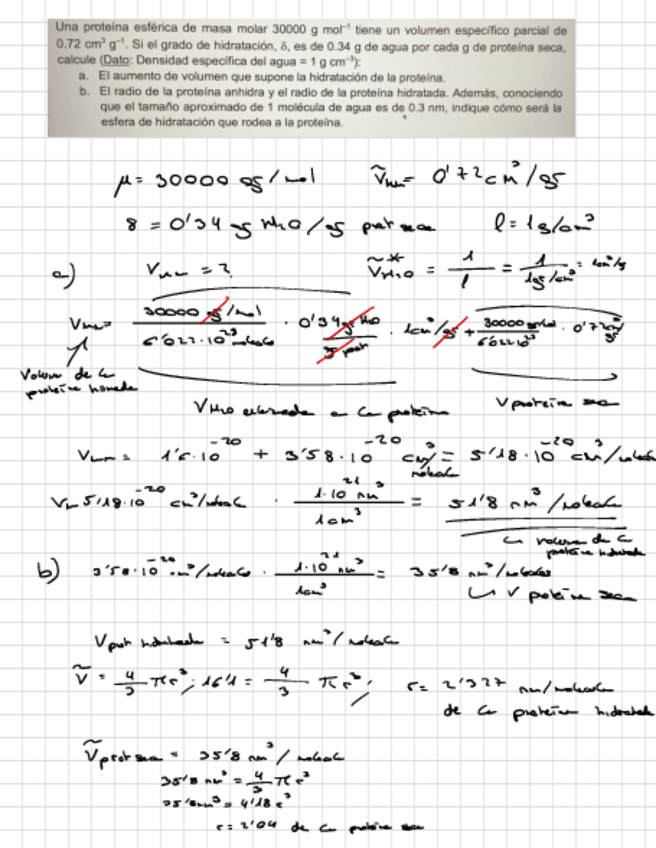 Una proteína esférica de masa molar 30000 g mol⁻¹ tiene un volumen específico parcial de
0.72 cm³ g⁻¹. Si el grado de hidratación, δ, es de 0.34 g de agua por cada g de proteína seca,
calcule (Dato: Densidad específica del agua = 1 g cm⁻³):
a. El aumento de volumen que supone la hidratación de la proteína.
b. El radio de la proteína anhidra y el radio de la proteína hidratada. Además, conociendo
que el tamaño aproximado de 1 molécula de agua es de 0.3 nm, indique cómo será la
esfera de hidratación que rodea a la proteína.
μ = 30000 gs/mol = 0'72 cm³/gs
8 = 0'34 gs H2O/gs prot seca l = 1g/cm³
a) = ? ṼH2O* = 1/l = 1/1gs/cm³ = 1cm³/g
= 30000 gs/mol / 6'022·10²³ · 0'34 gs H2O / gs prot · 1cm³/gs + 30000 gs/mol / 6'022·10²³ · 0'72 cm³/gs
Volumen de la
proteína
VH2O a la proteína V proteína seca
= 1'6·10⁻²⁰ + 3'58·10⁻²⁰ cm³/ = 5'18·10⁻²⁰ cm³/
5'18·10⁻²⁰ cm³/ · 1·10²¹ nm³ / 1cm³ = 51'8 nm³/
volumen de la
proteína hidratada
b) 3'58·10⁻²⁰ cm³/ · 1·10²¹ nm³ / 1cm³ = 35'8 nm³/
V proteína seca
V prot hidratada = 51'8 nm³/
Ṽ = 4/3 πr³; 16'1 = 4/3 πr³; r = 2'327 nm/
de la proteína hidratada
Ṽprot seca = 35'8 nm³/
35'8 nm³ = 4/3 πr³
35'8 nm³ = 4'18 r³
r = 2'04 de la proteína seca